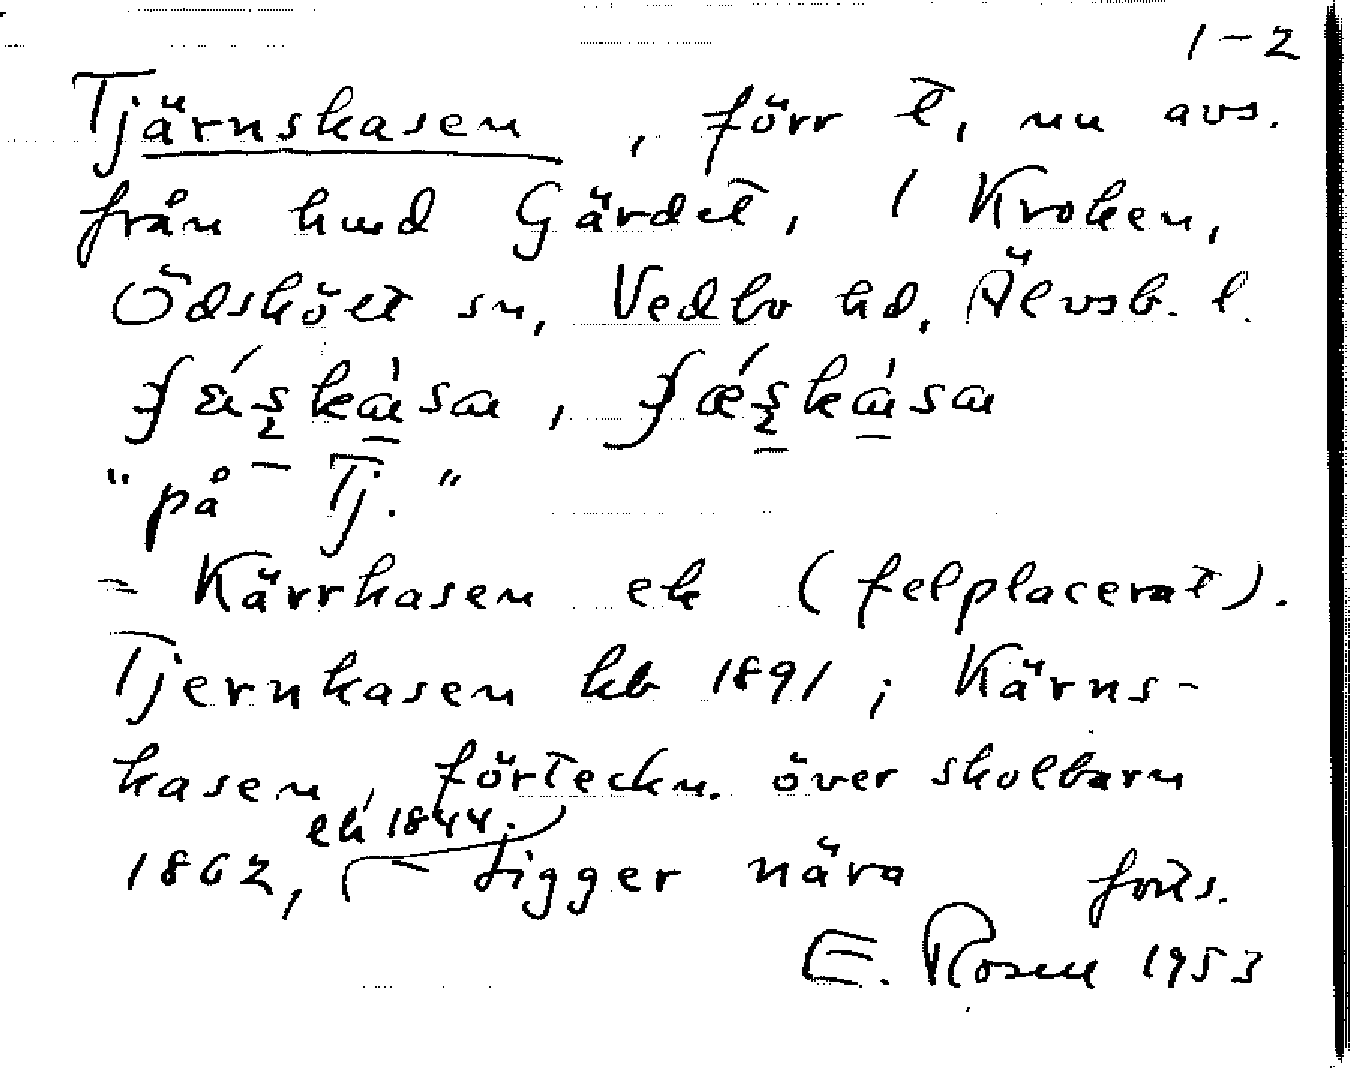 1-2
Tjärnskasen, förr t, nu avs.
från hmd Gärdet, 1 Kroken,
Ödskölt sn, Vedbo hd, Älvsb. l.
"på Tj."
= Kärrkasen ek (felplacerat).
Tjernkasen kb 1891; Kärns-
kasen, förteckn. över skolbarn
ek 1844.
1862, – Ligger nära forts.
E. Rosell 1953